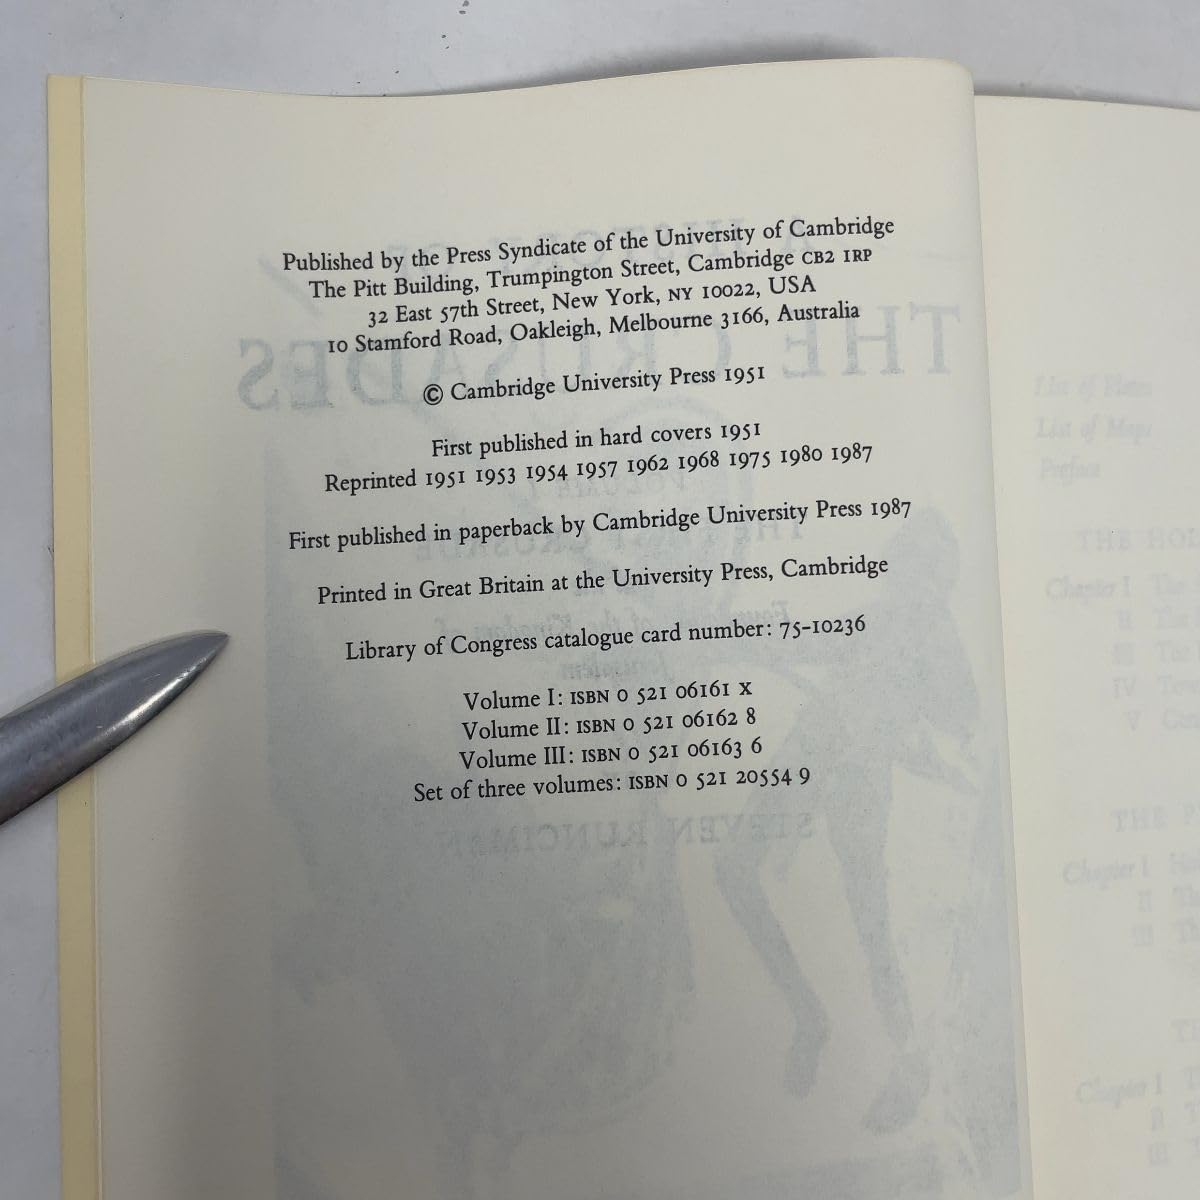 Published by the Press Syndicate of the University of Cambridge
The Pitt Building, Trumpington Street, Cambridge CB2 1RP
32 East 57th Street, New York, NY 10022, USA
10 Stamford Road, Oakleigh, Melbourne 3166, Australia
© Cambridge University Press 1951
First published in hard covers 1951
Reprinted 1951 1953 1954 1957 1962 1968 1975 1980 1987
First published in paperback by Cambridge University Press 1987
Printed in Great Britain at the University Press, Cambridge
Library of Congress catalogue card number: 75-10236
Volume I: ISBN 0 521 06161 X
Volume II: ISBN 0 521 06162 8
Volume III: ISBN 0 521 06163 6
Set of three volumes: ISBN 0 521 20554 9
THE CRUSADES
STEVEN RUNCIMAN
List of Plates
List of Maps
Preface
THE HOL
Chapter I The
II The
III The
IV
V
THE P
Chapter I
II The
III Th
Chapter I T
II T
III